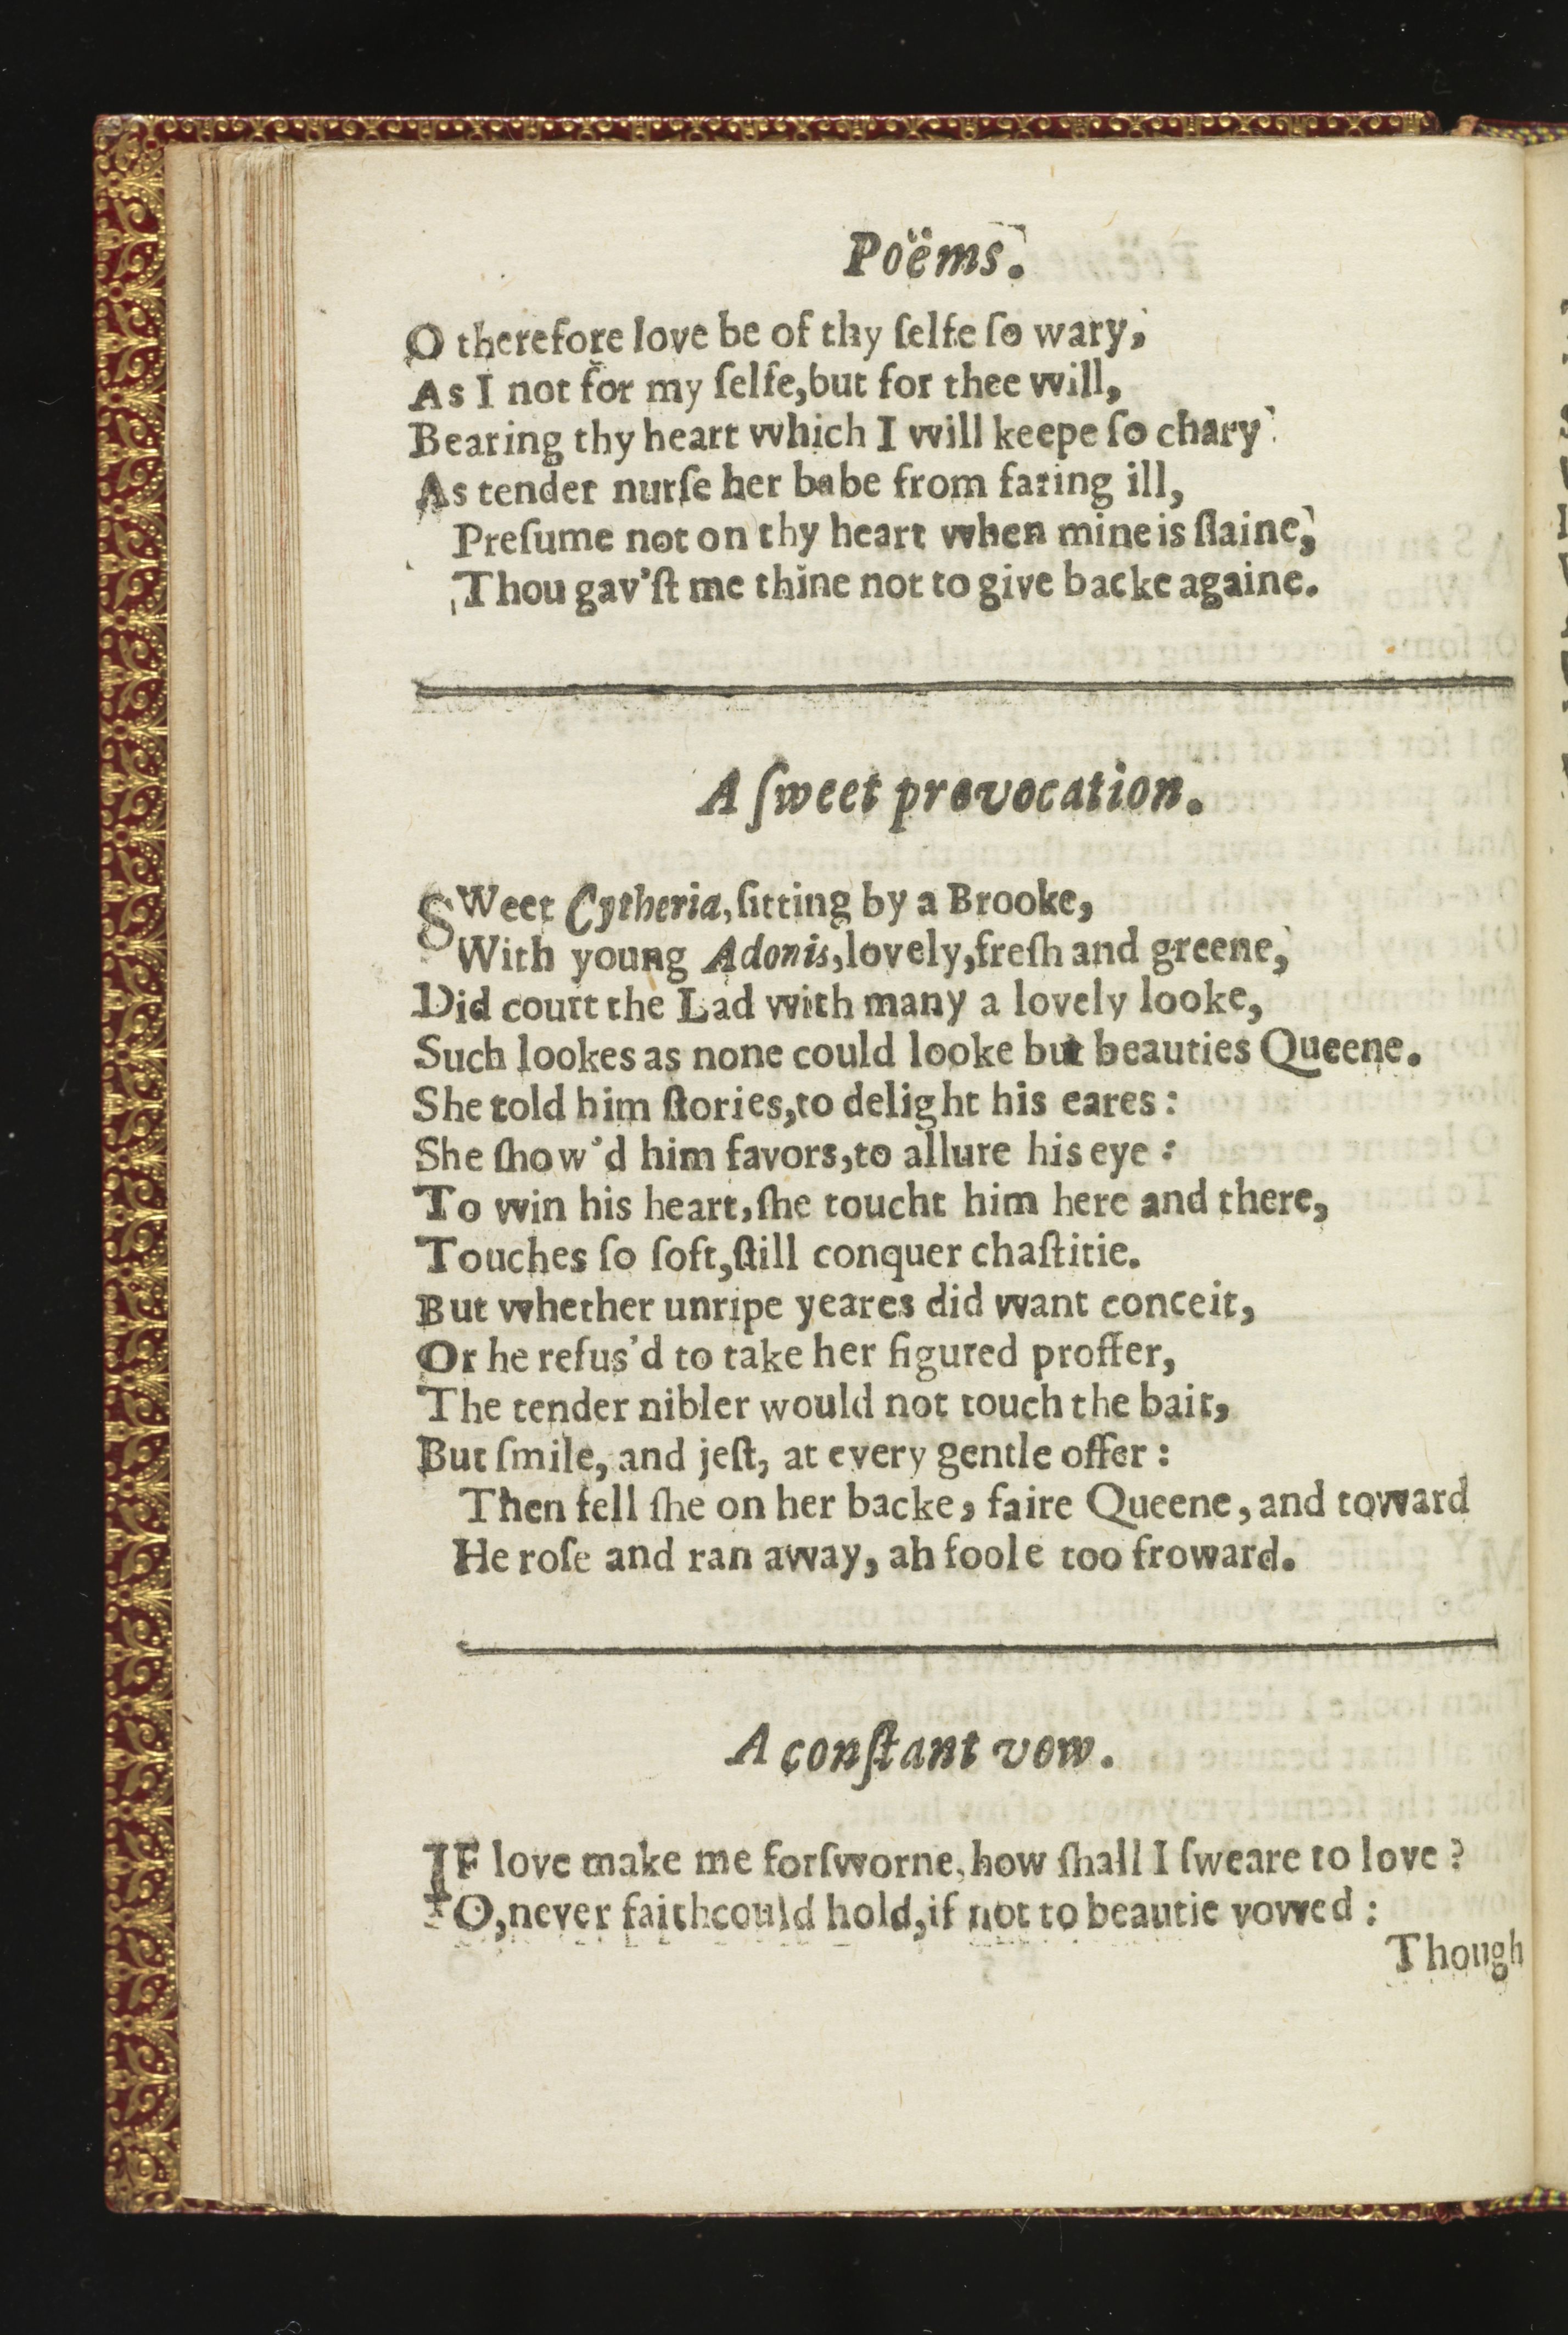 Poëms.
O therefore love be of thy ſelfe ſo wary,
As I not for my ſelfe,but for thee will,
Bearing thy heart which I will keepe ſo chary
As tender nurſe her babe from faring ill,
Preſume not on thy heart when mine is ſlaine,
Thou gav'ſt me thine not to give backe againe.
A ſweet provocation.
SWeet Cytheria, ſitting by a Brooke,
With young Adonis,lovely,freſh and greene,
Did court the Lad with many a lovely looke,
Such lookes as none could looke but beauties Queene.
She told him ſtories,to delight his eares:
She ſhow'd him favors,to allure his eye:
To win his heart,ſhe toucht him here and there,
Touches ſo ſoft,ſtill conquer chaſtitie.
But whether unripe yeares did want conceit,
Or he refus'd to take her figured proffer,
The tender nibler would not touch the bait,
But ſmile, and jeſt, at every gentle offer:
Then fell ſhe on her backe, faire Queene, and toward
He roſe and ran away, ah foole too froward.
A conſtant vow.
IF love make me forſworne,how ſhall I ſweare to love?
O,never faithcould hold,if not to beautie vowed:
Though